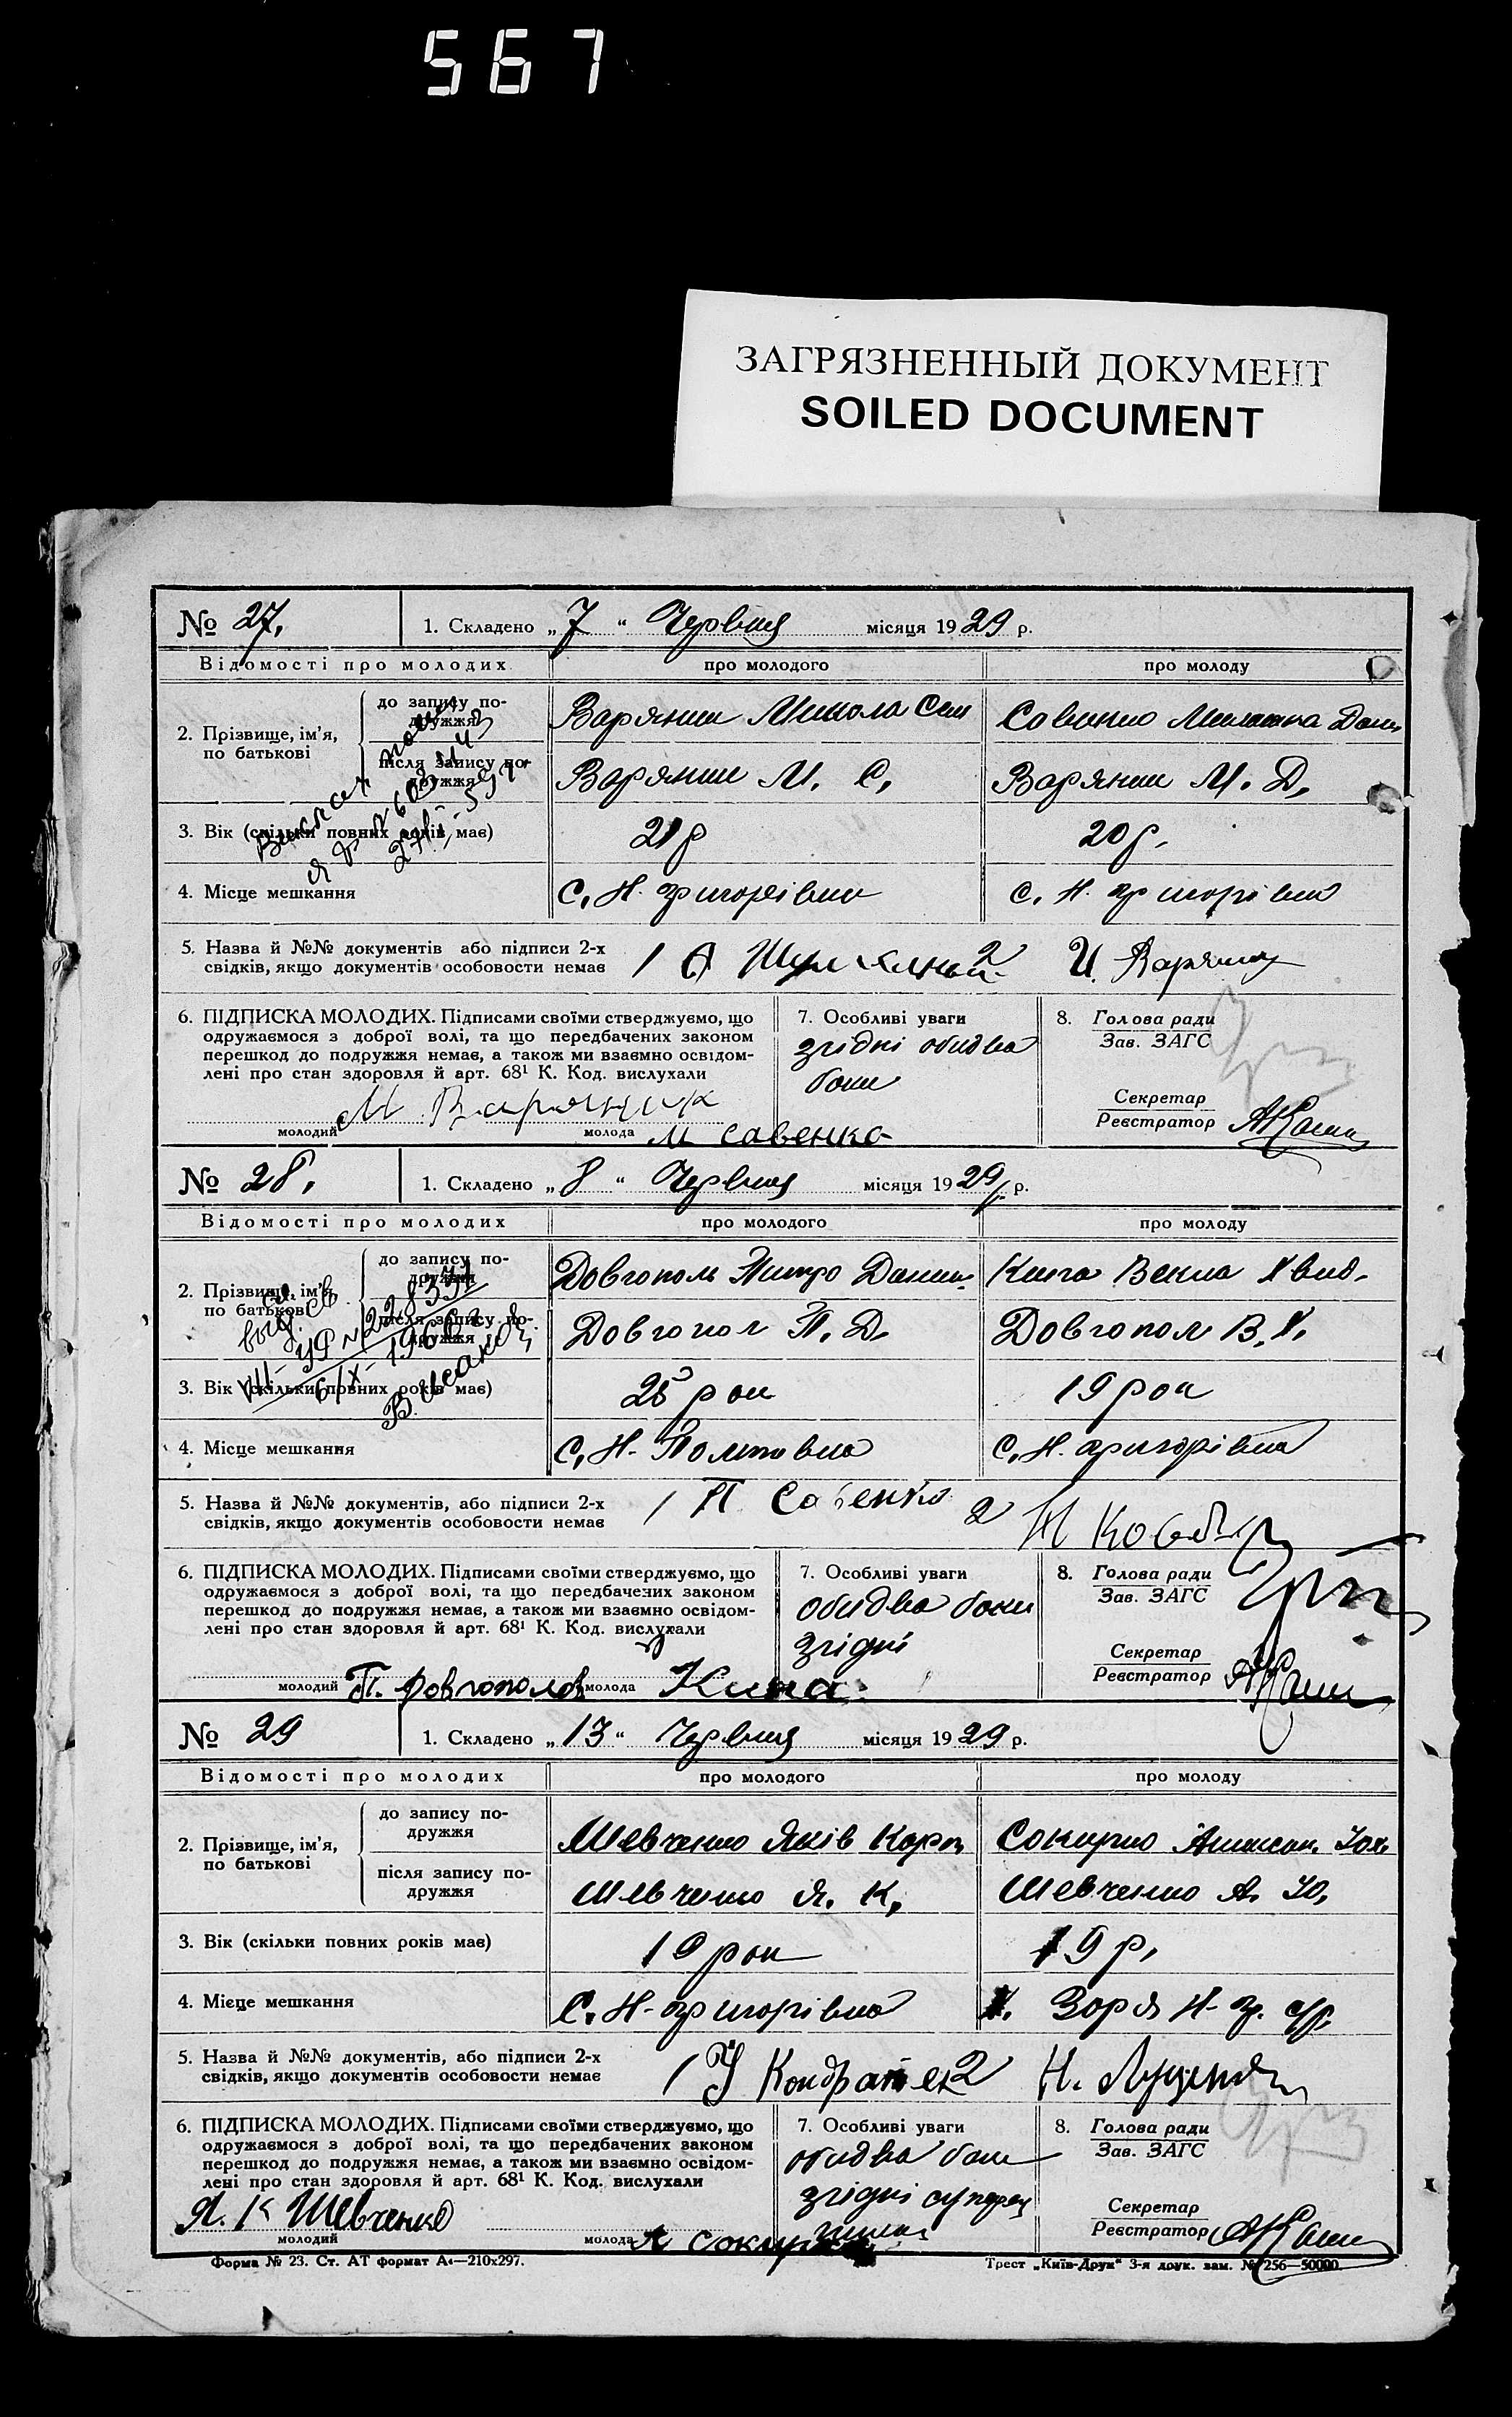 567
ЗАГРЯЗНЕННЫЙ ДОКУМЕНТ
SOILED DOCUMENT
№ 27. 1. Складено „ 7 “ Червня місяця 1929 р.
Відомості про молодих про молодого про молоду
2. Прізвище, ім'я, по батькові
до запису подружжя Варяник Микола Сем Савенко Меланка Дани
після запису подружжя Варяник М. С. Варяник М. Д.
3. Вік (скільки повних років має) 21 р 20 р.
4. Місце мешкання С. Н. Григорівка С. Н. Григорівка
5. Назва й №№ документів або підписи 2-х
свідків, якщо документів особовости немає 1 2 И. Варяник
6. ПІДПИСКА МОЛОДИХ. Підписами своїми стверджуємо, що
одружаємося з доброї волі, та що передбачених законом
перешкод до подружжя немає, а також ми взаємно освідом-
лені про стан здоровля й арт. 68¹ К. Код. вислухали
М Варяник
молодий молода М Савенко
7. Особливі уваги
згідні обидва
боки
8. Голова ради
Зав. ЗАГС
Секретар
Реєстратор
№ 28. 1. Складено „ 8 “ Червня місяця 1929 р.
Відомості про молодих про молодого про молоду
2. Прізвище, ім'я, по батькові
до запису подружжя Довгополь Питро Данил. Кина Векла Хвид.
після запису подружжя Довгопол П. Д. Довгопол В. Х.
3. Вік (скільки повних років має) 25 рок 19 рок
4. Місце мешкання С. Н. Полтавка С. Н. Григорівка
VIII-УР № 228337
6/IX-1966
В. Исаков
5. Назва й №№ документів, або підписи 2-х
свідків, якщо документів особовости немає 1 П Савенко 2
6. ПІДПИСКА МОЛОДИХ. Підписами своїми стверджуємо, що
одружаємося з доброї волі, та що передбачених законом
перешкод до подружжя немає, а також ми взаємно освідом-
лені про стан здоровля й арт. 68¹ К. Код. вислухали
молодий П. Довгополов молода Кина
7. Особливі уваги
обидва боки
згідні
8. Голова ради
Зав. ЗАГС
Секретар
Реєстратор
№ 29 1. Складено „ 13 “ Червня місяця 1929 р.
Відомості про молодих про молодого про молоду
2. Прізвище, ім'я, по батькові
до запису подружжя Шевченко Яків Карп Сокирко
після запису подружжя Шевченко Я. К. Шевченко А. Ю.
3. Вік (скільки повних років має) 19 рок 19 р.
4. Місце мешкання С. Н. Григорівка Х. Зоря Н-Гр. с/р.
5. Назва й №№ документів, або підписи 2-х
свідків, якщо документів особовости немає 1 2 Н. Луценко
6. ПІДПИСКА МОЛОДИХ. Підписами своїми стверджуємо, що
одружаємося з доброї волі, та що передбачених законом
перешкод до подружжя немає, а також ми взаємно освідом-
лені про стан здоровля й арт. 68¹ К. Код. вислухали
Я. К Шевченко
молодий молода А Сокирко
7. Особливі уваги
обидва боки
згідні
8. Голова ради
Зав. ЗАГС
Секретар
Реєстратор
Форма № 23. Ст. АТ формат А4—210х297. Трест „Київ-Друк“ 3-я друк. зам. № 256—50000.